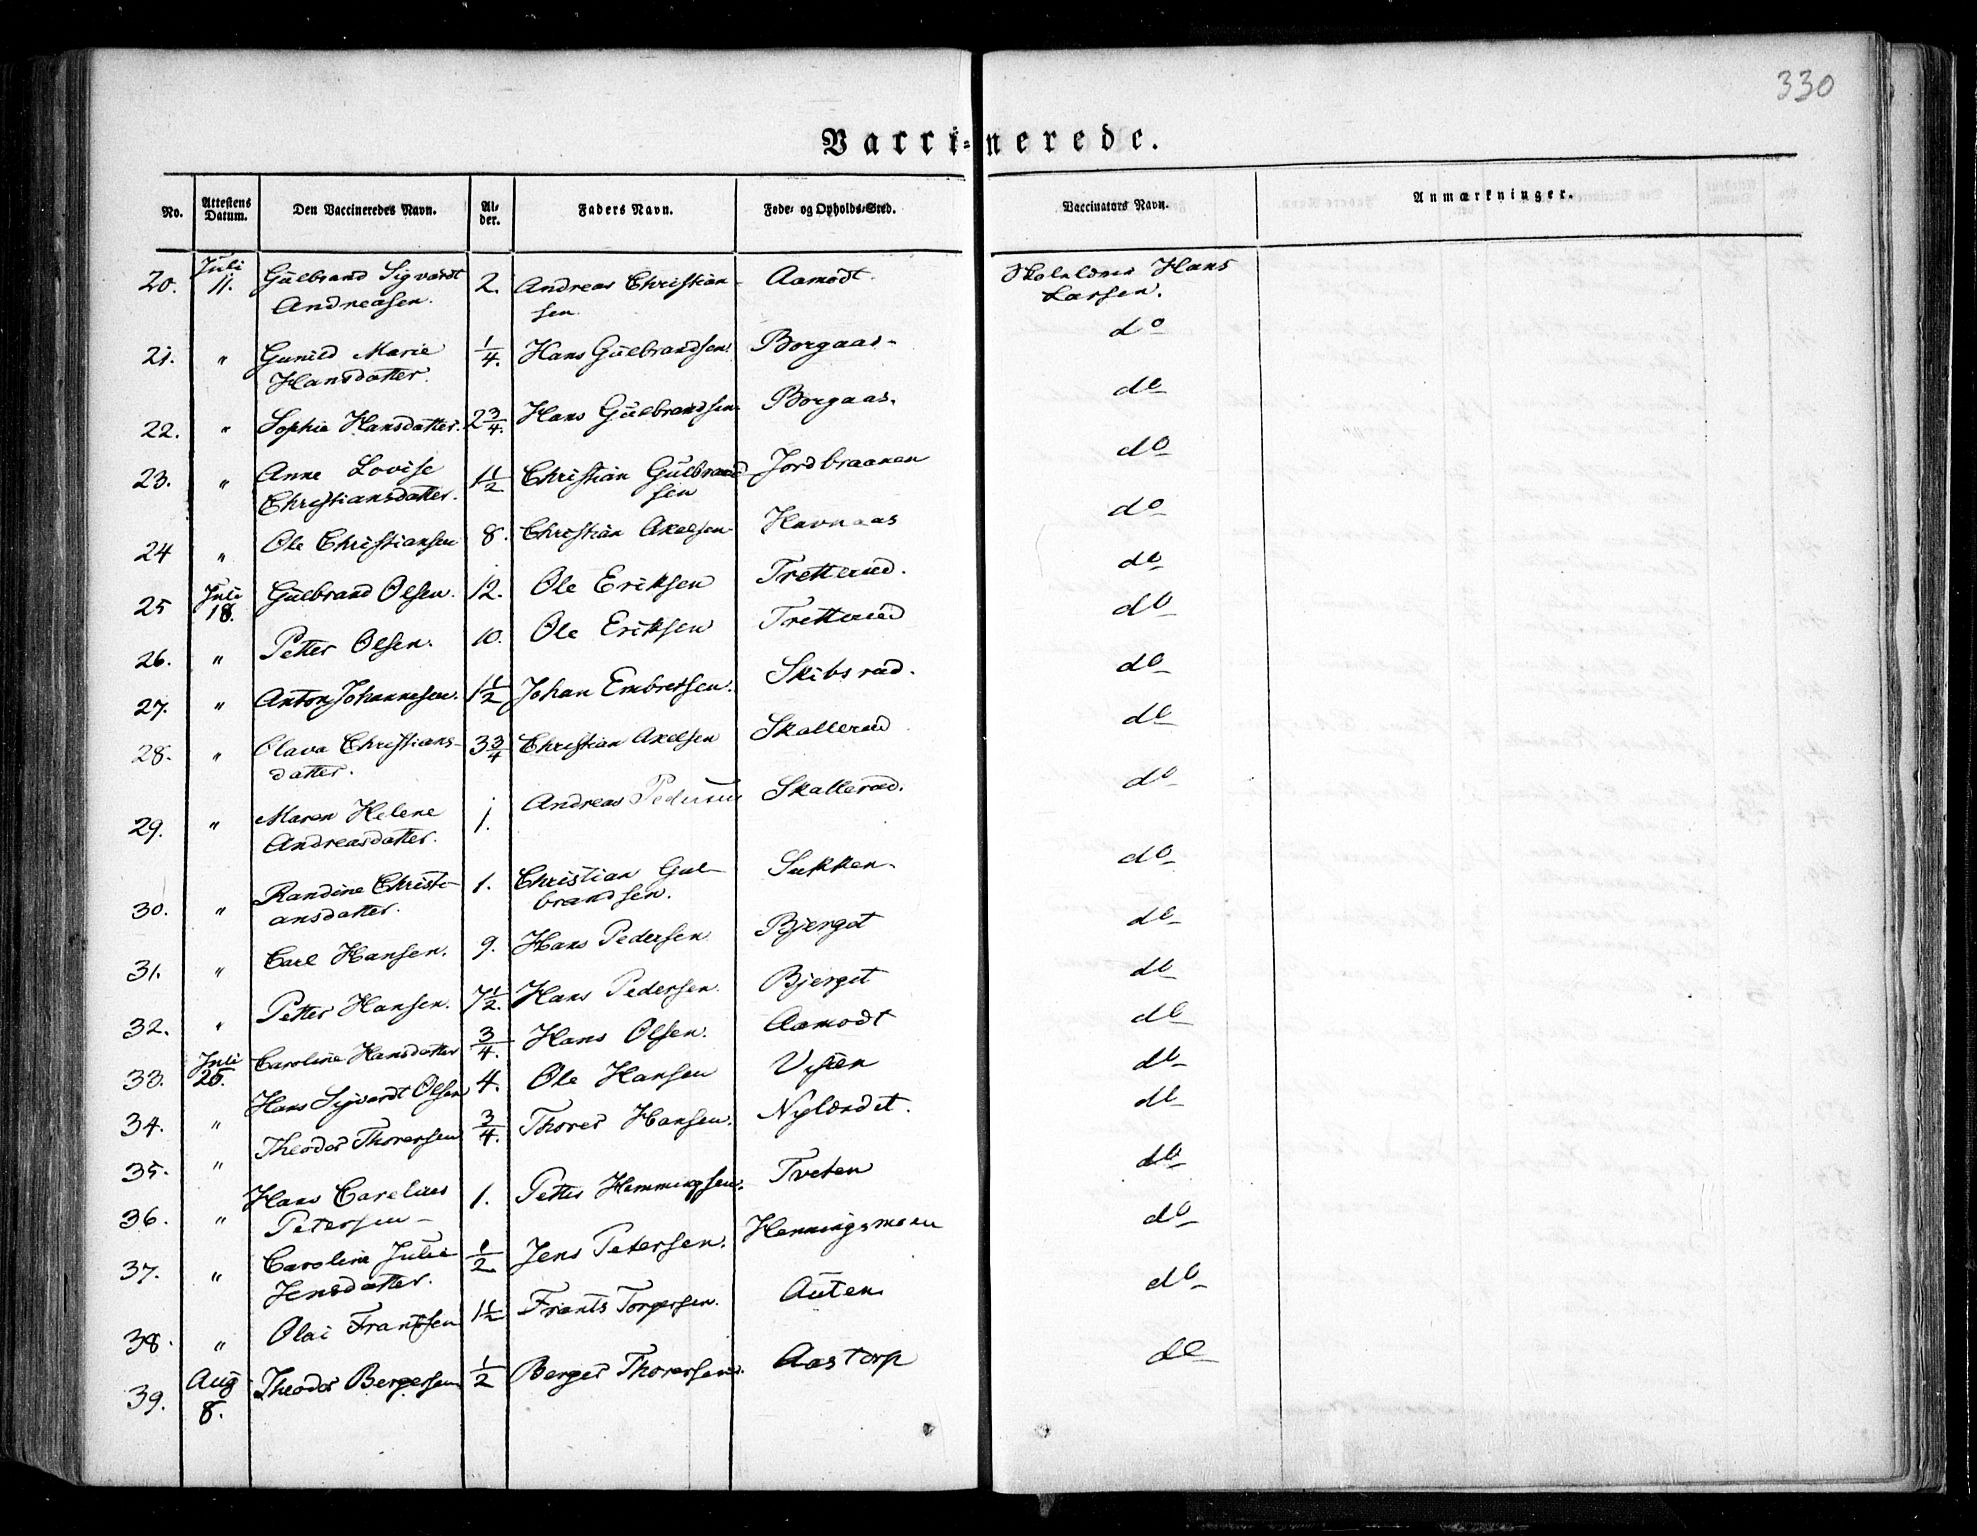 330
Vacci-nerede.
No. Attestens Datum. Den Vaccineredes Navn. Al-der. Faders Navn. Føde- og Opholds-Sted. Vaccinators Navn. Anmærkninger.
20. Juli 11. Gulbrand Sigvardt 2. Andreas Christian- Aamodt Skolelærer Hans
Andreasen. sen Larsen.
21. " Gunild Marie 1/4. Hans Gulbrandsen. Borgaas- do
Hansdatter.
22. " Sophie Hansdatter. 2 3/4. Hans Gulbrandsen Borgaas. do
23. " Anne Lovise 1 1/2 Christian Gulbrand Jordbraanen do
Christiansdatter. sen
24 " Ole Christiansen 8. Christian Axelsen Havnaas do
25 Juli 18. Gulbrand Olsen. 12. Ole Eriksen Tretterud. do
26. " Petter Olsen. 10. Ole Eriksen Tretterud do
27. " Anton Johannesen. 1 1/2 Johan Embretsen. Skibsrud. do
28. " Olava Christians- 3 3/4 Christian Axelsen Skallerud do
datter.
29. " Maren Helene 1. Andreas Pedersen Skallerud. do
Andreasdatter.
30. " Randine Christi- 1. Christian Gul- Sukken. do
ansdatter. brandsen.
31. " Carl Hansen. 9. Hans Pedersen Bjerget do
32. " Petter Hansen. 7 1/2. Hans Pedersen. Bjerget do
33. Juli 25. Caroline Hansdatter 3/4. Hans Olsen. Aamodt do
34. " Hans Sigvardt Olsen 4. Ole Hansen do
35. " Theodor Thorersen 3/4. Thorer Hansen. Nylændet. do
36. " Hans Carelius 1. Petter Hemmingsen. Tveten do
Petersen-
37. " Caroline Julie 1/2. Jens Petersen. Henningsmoen do
Jensdatter.
38. " Olai Frantsen 1 1/2 Frants Torgersen. Auten do
39. Aug 8. Theodor Bergersen 1/2 Berger Thorersen. Aastorp do